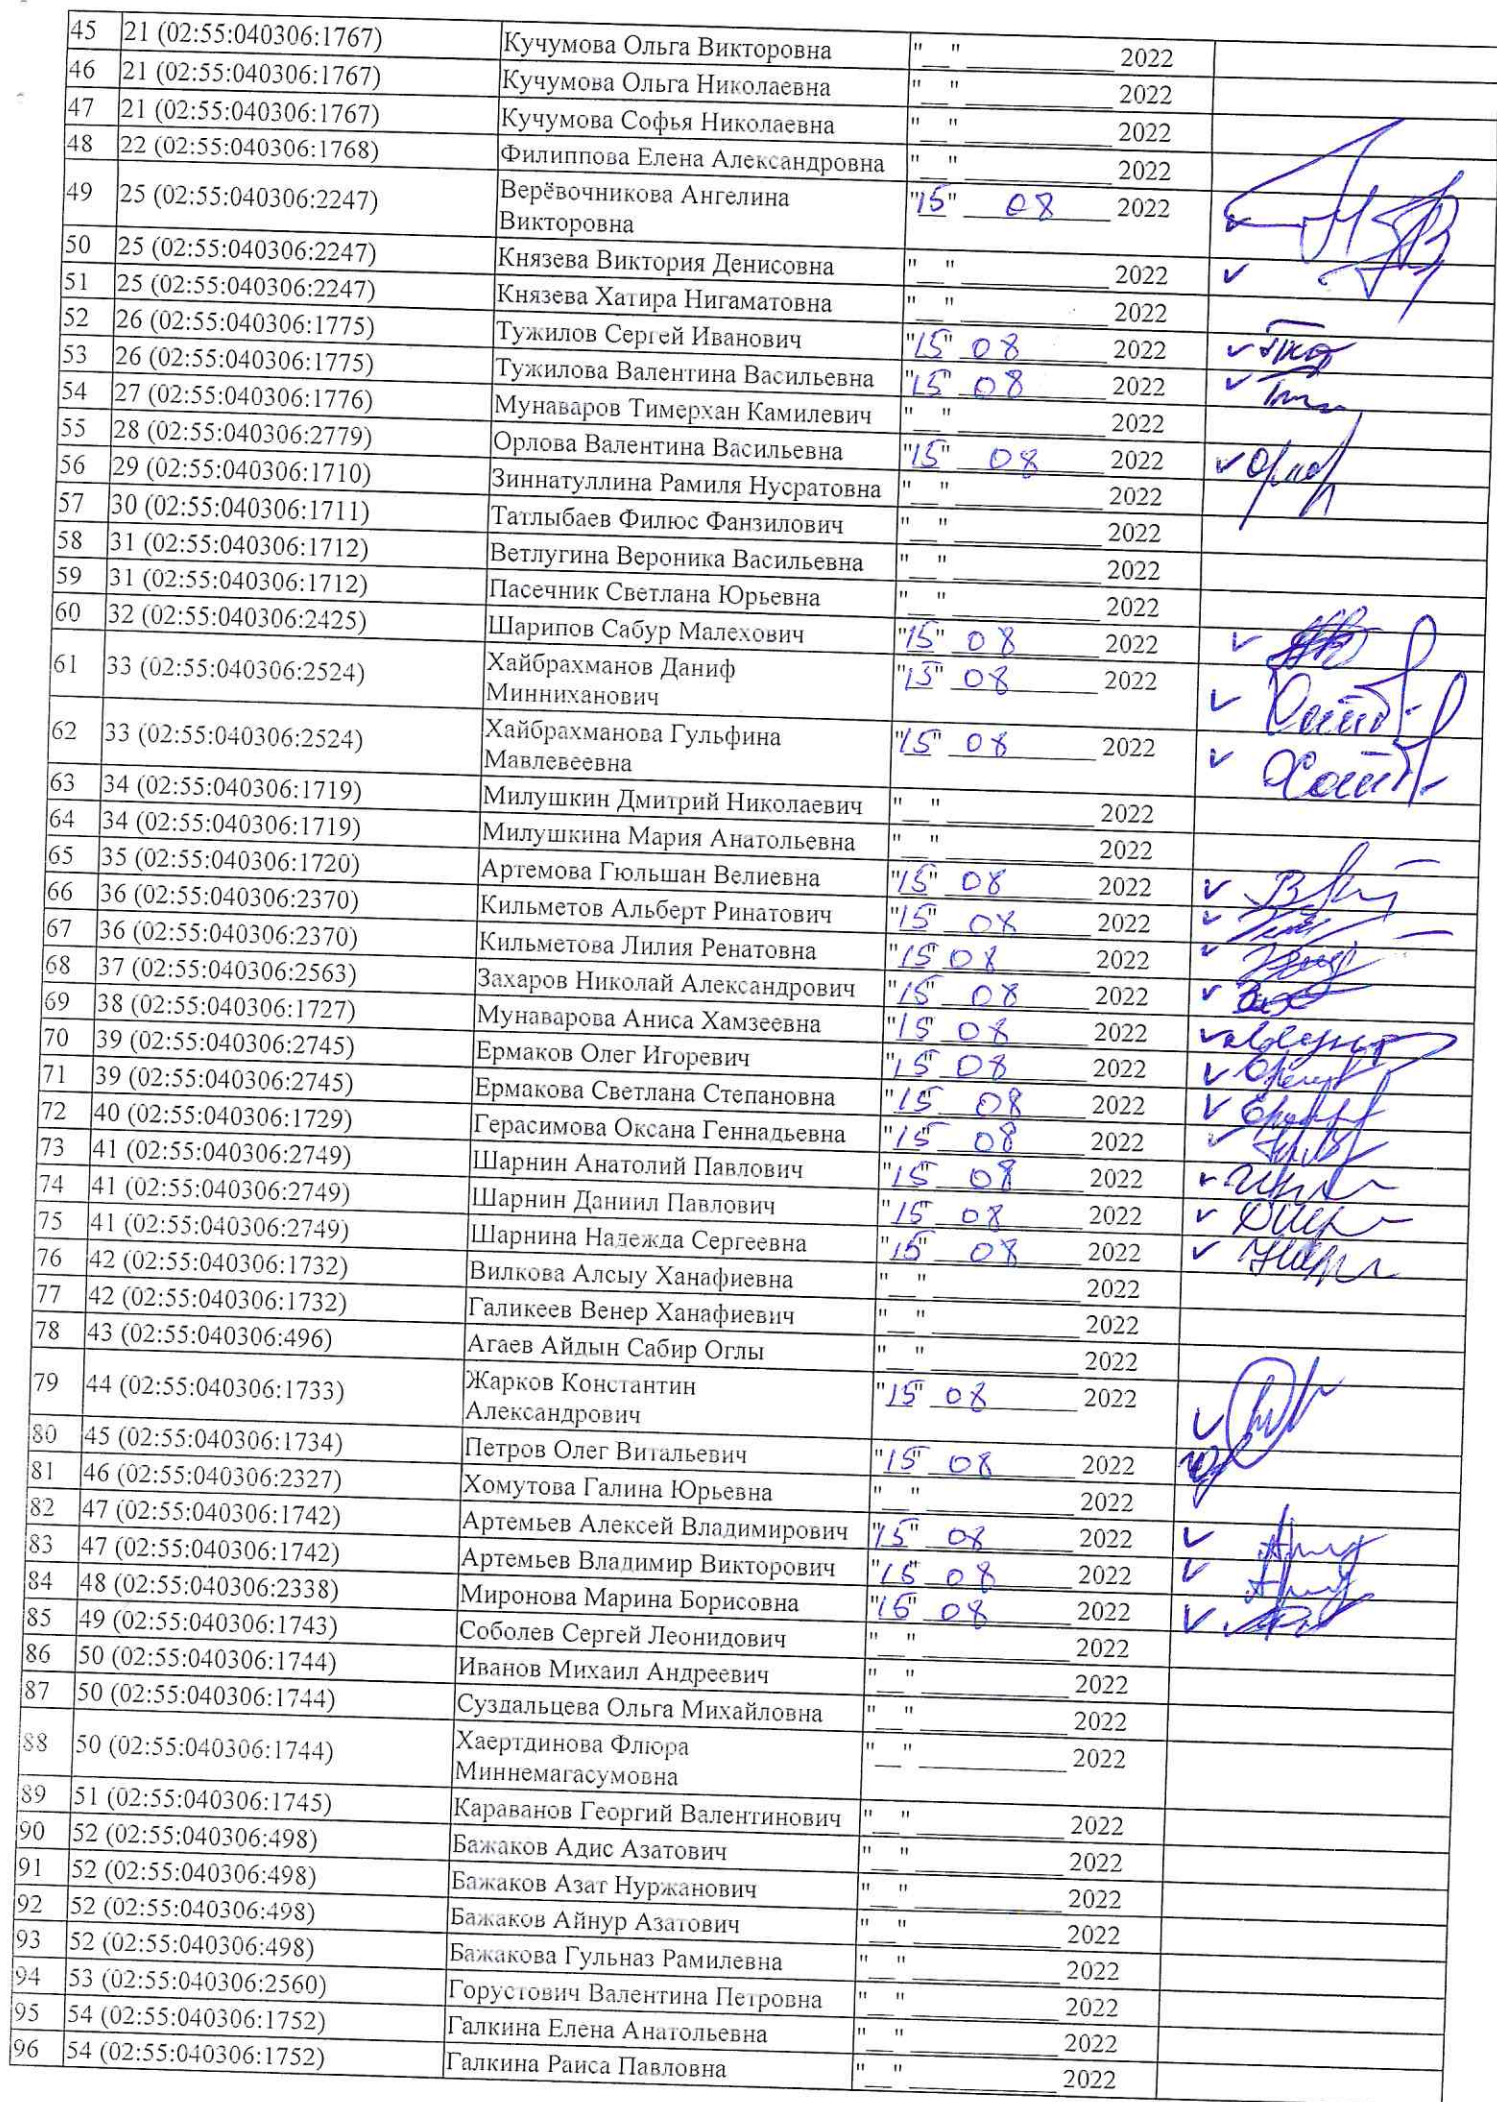 45 21 (02:55:040306:1767) Кучумова Ольга Викторовна "__" ____________ 2022
46 21 (02:55:040306:1767) Кучумова Ольга Николаевна "__" ____________ 2022
47 21 (02:55:040306:1767) Кучумова Софья Николаевна "__" ____________ 2022
48 22 (02:55:040306:1768) Филиппова Елена Александровна "__" ____________ 2022
49 25 (02:55:040306:2247) Верёвочникова Ангелина "15" 08 2022
Викторовна
50 25 (02:55:040306:2247) Князева Виктория Денисовна "__" ____________ 2022
51 25 (02:55:040306:2247) Князева Хатира Нигаматовна "__" ____________ 2022
52 26 (02:55:040306:1775) Тужилов Сергей Иванович "15" 08 2022
53 26 (02:55:040306:1775) Тужилова Валентина Васильевна "15" 08 2022
54 27 (02:55:040306:1776) Мунаваров Тимерхан Камилевич "__" ____________ 2022
55 28 (02:55:040306:2779) Орлова Валентина Васильевна "15" 08 2022
56 29 (02:55:040306:1710) Зиннатуллина Рамиля Нусратовна "__" ____________ 2022
57 30 (02:55:040306:1711) Татлыбаев Филюс Фанзилович "__" ____________ 2022
58 31 (02:55:040306:1712) Ветлугина Вероника Васильевна "__" ____________ 2022
59 31 (02:55:040306:1712) Пасечник Светлана Юрьевна "__" ____________ 2022
60 32 (02:55:040306:2425) Шарипов Сабур Малехович "15" 08 2022
61 33 (02:55:040306:2524) Хайбрахманов Даниф "15" 08 2022
Минниханович
62 33 (02:55:040306:2524) Хайбрахманова Гульфина "15" 08 2022
Мавлевеевна
63 34 (02:55:040306:1719) Милушкин Дмитрий Николаевич "__" ____________ 2022
64 34 (02:55:040306:1719) Милушкина Мария Анатольевна "__" ____________ 2022
65 35 (02:55:040306:1720) Артемова Гюльшан Велиевна "15" 08 2022
66 36 (02:55:040306:2370) Кильметов Альберт Ринатович "15" 08 2022
67 36 (02:55:040306:2370) Кильметова Лилия Ренатовна "15" 08 2022
68 37 (02:55:040306:2563) Захаров Николай Александрович "15" 08 2022
69 38 (02:55:040306:1727) Мунаварова Аниса Хамзеевна "15" 08 2022
70 39 (02:55:040306:2745) Ермаков Олег Игоревич "15" 08 2022
71 39 (02:55:040306:2745) Ермакова Светлана Степановна "15" 08 2022
72 40 (02:55:040306:1729) Герасимова Оксана Геннадьевна "15" 08 2022
73 41 (02:55:040306:2749) Шарнин Анатолий Павлович "15" 08 2022
74 41 (02:55:040306:2749) Шарнин Даниил Павлович "15" 08 2022
75 41 (02:55:040306:2749) Шарнина Надежда Сергеевна "15" 08 2022
76 42 (02:55:040306:1732) Вилкова Алсыу Ханафиевна "__" ____________ 2022
77 42 (02:55:040306:1732) Галикеев Венер Ханафиевич "__" ____________ 2022
78 43 (02:55:040306:496) Агаев Айдын Сабир Оглы "__" ____________ 2022
79 44 (02:55:040306:1733) Жарков Константин "15" 08 2022
Александрович
80 45 (02:55:040306:1734) Петров Олег Витальевич "15" 08 2022
81 46 (02:55:040306:2327) Хомутова Галина Юрьевна "__" ____________ 2022
82 47 (02:55:040306:1742) Артемьев Алексей Владимирович "15" 08 2022
83 47 (02:55:040306:1742) Артемьев Владимир Викторович "15" 08 2022
84 48 (02:55:040306:2338) Миронова Марина Борисовна "15" 08 2022
85 49 (02:55:040306:1743) Соболев Сергей Леонидович "__" ____________ 2022
86 50 (02:55:040306:1744) Иванов Михаил Андреевич "__" ____________ 2022
87 50 (02:55:040306:1744) Суздальцева Ольга Михайловна "__" ____________ 2022
88 50 (02:55:040306:1744) Хаертдинова Флюра "__" ____________ 2022
Миннемагасумовна
89 51 (02:55:040306:1745) Караванов Георгий Валентинович "__" ____________ 2022
90 52 (02:55:040306:498) Бажаков Адис Азатович "__" ____________ 2022
91 52 (02:55:040306:498) Бажаков Азат Нуржанович "__" ____________ 2022
92 52 (02:55:040306:498) Бажаков Айнур Азатович "__" ____________ 2022
93 52 (02:55:040306:498) Бажакова Гульназ Рамилевна "__" ____________ 2022
94 53 (02:55:040306:2560) Горустович Валентина Петровна "__" ____________ 2022
95 54 (02:55:040306:1752) Галкина Елена Анатольевна "__" ____________ 2022
96 54 (02:55:040306:1752) Галкина Раиса Павловна "__" ____________ 2022